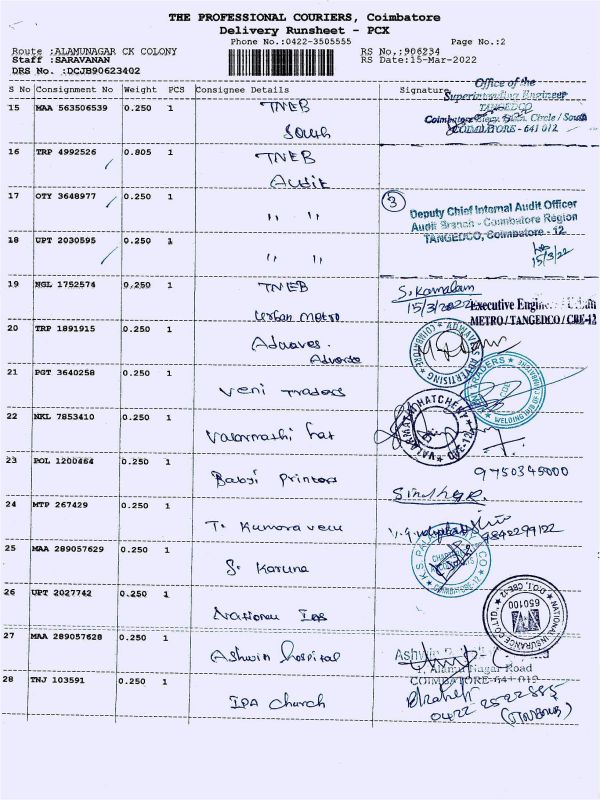 THE PROFESSIONAL COURIERS, Coimbatore
Delivery Runsheet - PCX
Phone No.:0422-3505555 Page No.:2
Route :ALAMUNAGAR CK COLONY RS No.:906234
Staff :SARAVANAN RS Date:15-Mar-2022
DRS No. :DCJB90623402
S No Consignment No Weight PCS Consignee Details Signature
Office of the
Superintending Engineer
TANGEDCO
15 MAA 563506539 0.250 1 TNEB
South
COIMBATORE - 641 012
16 TRP 4992526 0.805 1 TNEB
Audit
17 OTY 3648977 0.250 1 " "
3
Deputy Chief Internal Audit Officer
Audit Branch - Coimbatore Region
TANGEDCO, Coimbatore - 12
18 UPT 2030595 0.250 1 " "
15/3/22
19 NGL 1752574 0.250 1 TNEB
Urban Metro
S. Kamalam
15/3/2022
Executive Engineer
METRO/TANGEDCO/CBE-12
20 TRP 1891915 0.250 1 Adwaves.
Advertise
ADWAVES ADVERTISING
21 PGT 3640258 0.250 1 Veni Traders
TRADERS
22 NKL 7853410 0.250 1 Valarmathi hat
VALARMATHI HATCHERY
23 POL 1200464 0.250 1 Babji Printers
9750345000
24 MTP 267429 0.250 1 T. Kumaravelu
9842299122
25 MAA 289057629 0.250 1 S. Karuna
26 UPT 2027742 0.250 1 National Ins
NATIONAL INSURANCE CO. LTD.
650100
27 MAA 289057628 0.250 1 Ashwin hospital
Ashwin
Alamu Nagar Road
COIMBATORE-641 012
28 TNJ 103591 0.250 1 IPA Church
0422